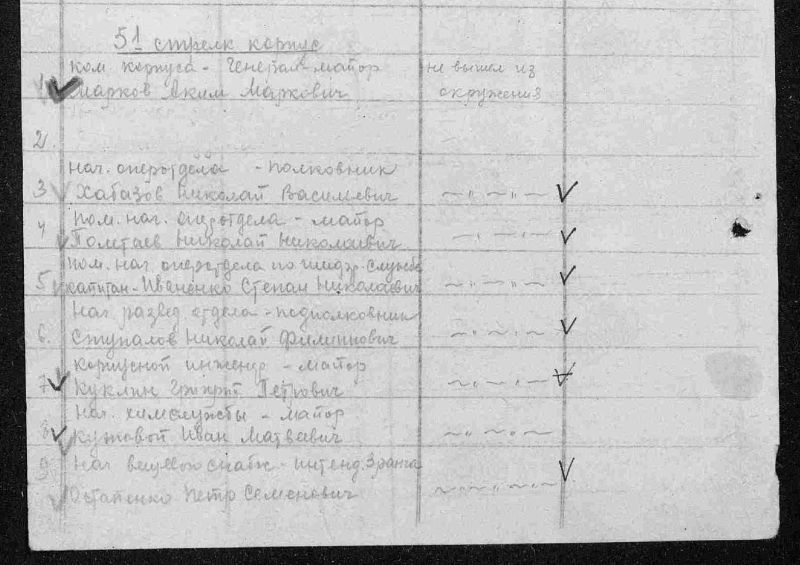 51 стрелк корпус
ком. корпуса - Генерал-майор не вышел из
1 Марков Аким Маркович окружения
2.
нач. оперотдела - полковник
3 Хабазов Николай Васильевич —"—"—
пом. нач. оперотдела - майор
4 Николай Николаевич —"—"—
пом. нач. оперотдела по шифр. службе
5 капитан - Иваненко Степан Николаевич —"—"—
Нач. развед отдела - подполковник
6. Ступалов Николай Филиппович —"—"—
корпусной инженер - майор
7 Куклин Григорий Петрович —"—"—
нач. химслужбы - майор
8 Кужовой Иван Матвеевич —"—"—
9 нач вещевого снабж - интенд 3 ранга
Остапенко Петр Семенович —"—"—"—